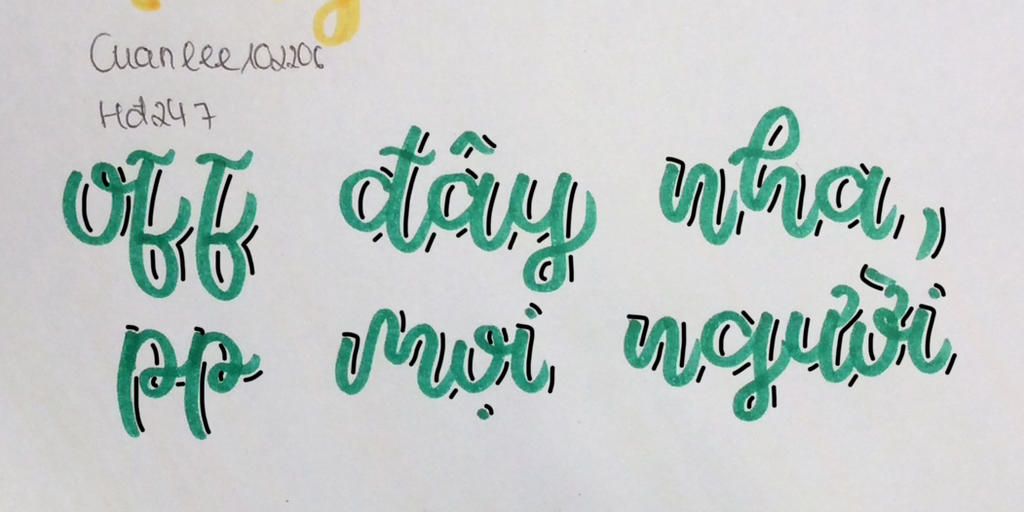 Cuanlee102206
Hđ247
off đây nha,
pp mọi người